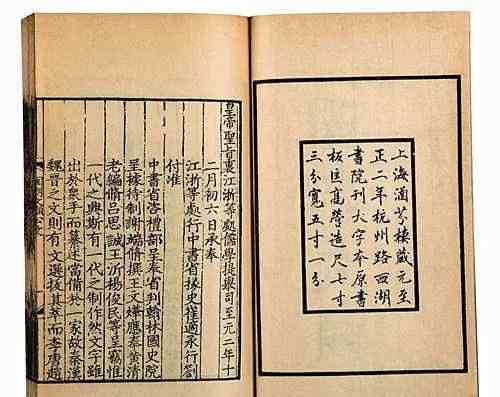 上海涵芬樓藏元至
正二年杭州路西湖
書院刊大字本原書
板匡高營造尺七寸
三分寬五寸一分
皇帝聖旨裏江浙等處儒學提舉司至元二年十
二月初六日承奉
江浙等處行中書省掾史崔適承行劄
付准
中書省咨禮部呈奉省判翰林國史院
呈據待制謝端脩撰王文煒應奉黃清
老編脩呂思誠王沂楊俊民等呈竊惟
一代之興斯有一代之制作然文字雖
出於衆手而纂述當備於一家故秦漢
魏晉之文則有文選拔其萃而李唐趙